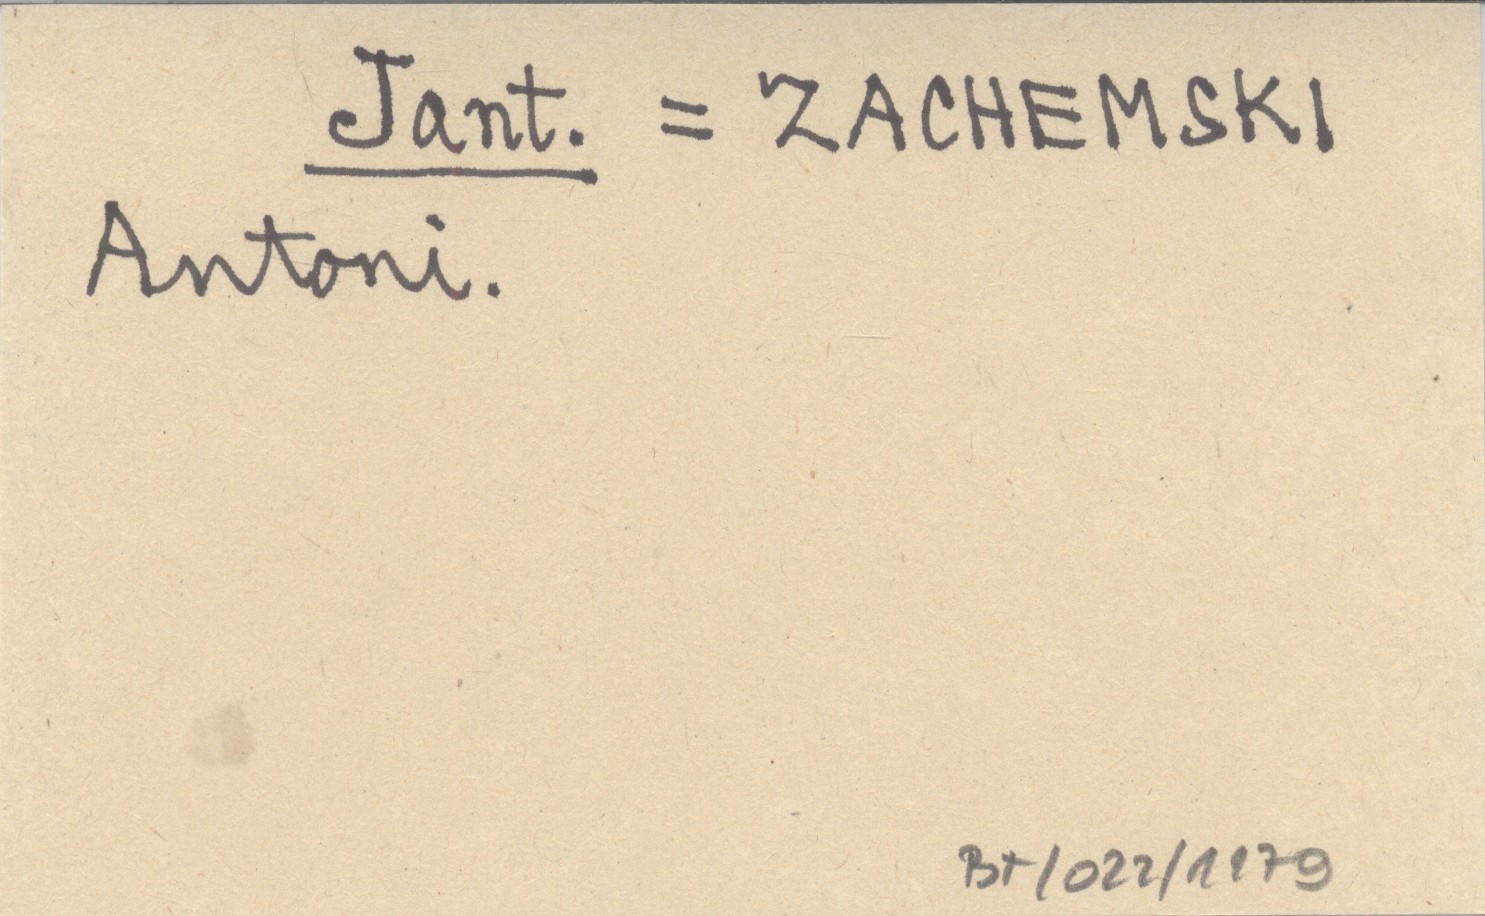 Jant. = ZACHEMSKI
Antoni.
Bt/022/1179